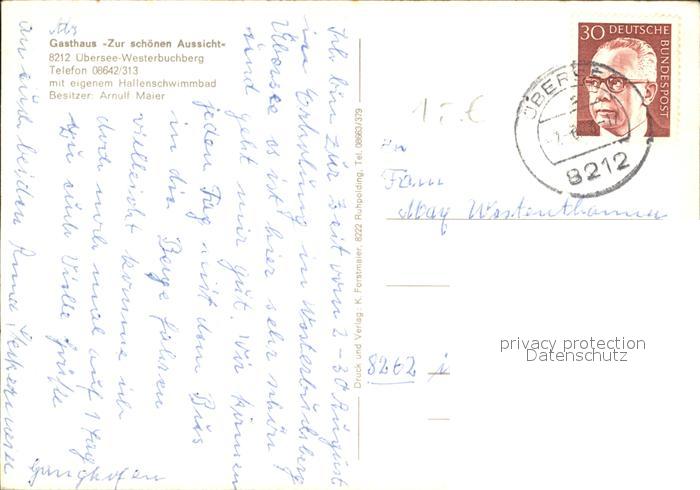 Gasthaus »Zur schönen Aussicht«
8212 Übersee-Westerbuchberg
Telefon 08642/313
mit eigenem Hallenschwimmbad
Besitzer: Arnulf Maier
Ich bin zur Zeit vom 2-30 August
in Erholung in Westerbuchberg
Übersee es ist hier sehr schön
und geht mir gut. Wir können
jeden Tag mit dem Bus
in die Berge fahren
vielleicht komme ich
doch noch mal auf 1 Tag
zu euch Viele Grüße
an euch beiden Anna
Druck und Verlag: K. Forstmaier, 8222 Ruhpolding, Tel. 08663/379
30 DEUTSCHE
BUNDESPOST
ÜBERSEE
8212
1,- €
An
Fam
May
8262
privacy protection
Datenschutz